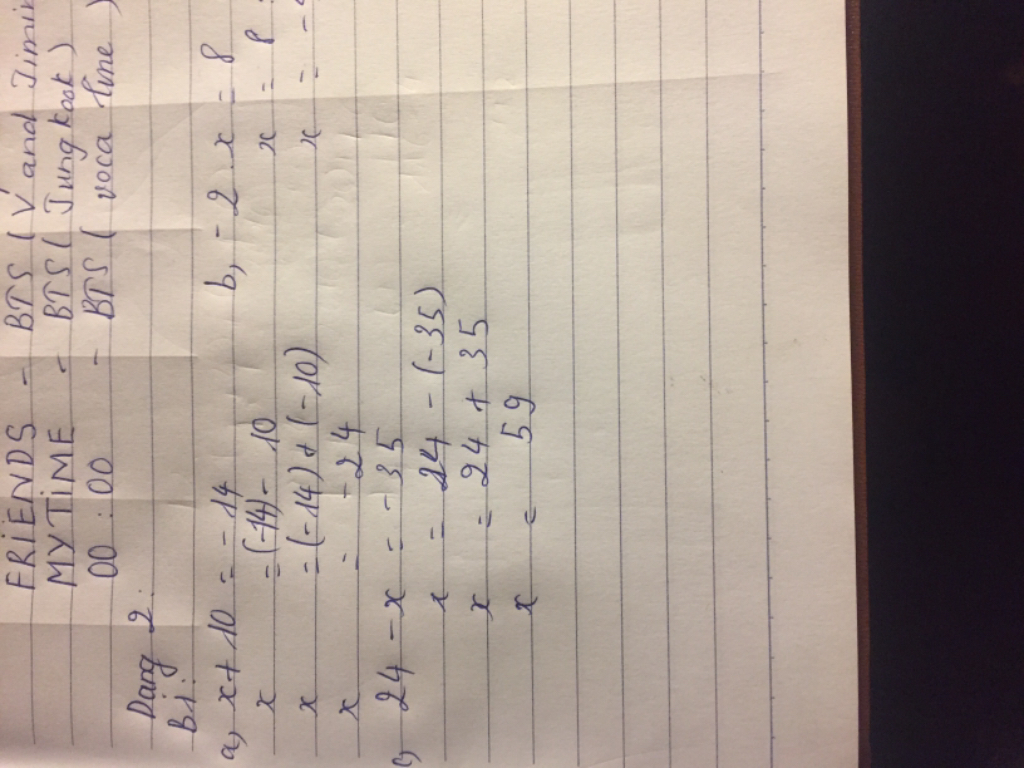 FRIENDS - BTS ( V and Jimin
MYTIME - BTS ( Jungkook )
00 : 00 - BTS ( voca line )
Dạng 2.
B1:
a, x + 10 = - 14
x = (-14) - 10
x = (-14) + (-10)
x = - 24
b, - 2 . x = 8
x = 8 :
x = -
c, 24 - x = - 35
x = 24 - (-35)
x = 24 + 35
x = 59